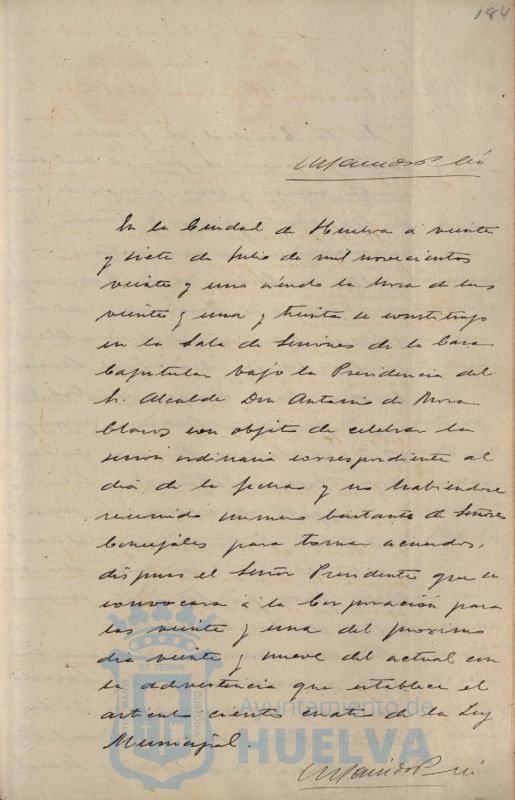 184
En la Ciudad de Huelva a veinte
y siete de Julio de mil novecientos
veinte y uno siendo la hora de las
veinte y una y treinta se constituyo
en la Sala de Sesiones de la Casa
Capitular bajo la Presidencia del
Sr. Alcalde Don Antonio de Mora
Claros con objeto de celebrar la
sesion ordinaria correspondiente al
dia de la fecha y no habiendose
reunido numero bastante de Señores
Concejales para tomar acuerdos,
dispuso el Señor Presidente que se
convocara a la Corporación para
las veinte y una del proximo
dia veinte y nueve del actual con
la advertencia que establece el
articulo ciento cuatro de la Ley
Municipal.
Ayuntamiento de
HUELVA